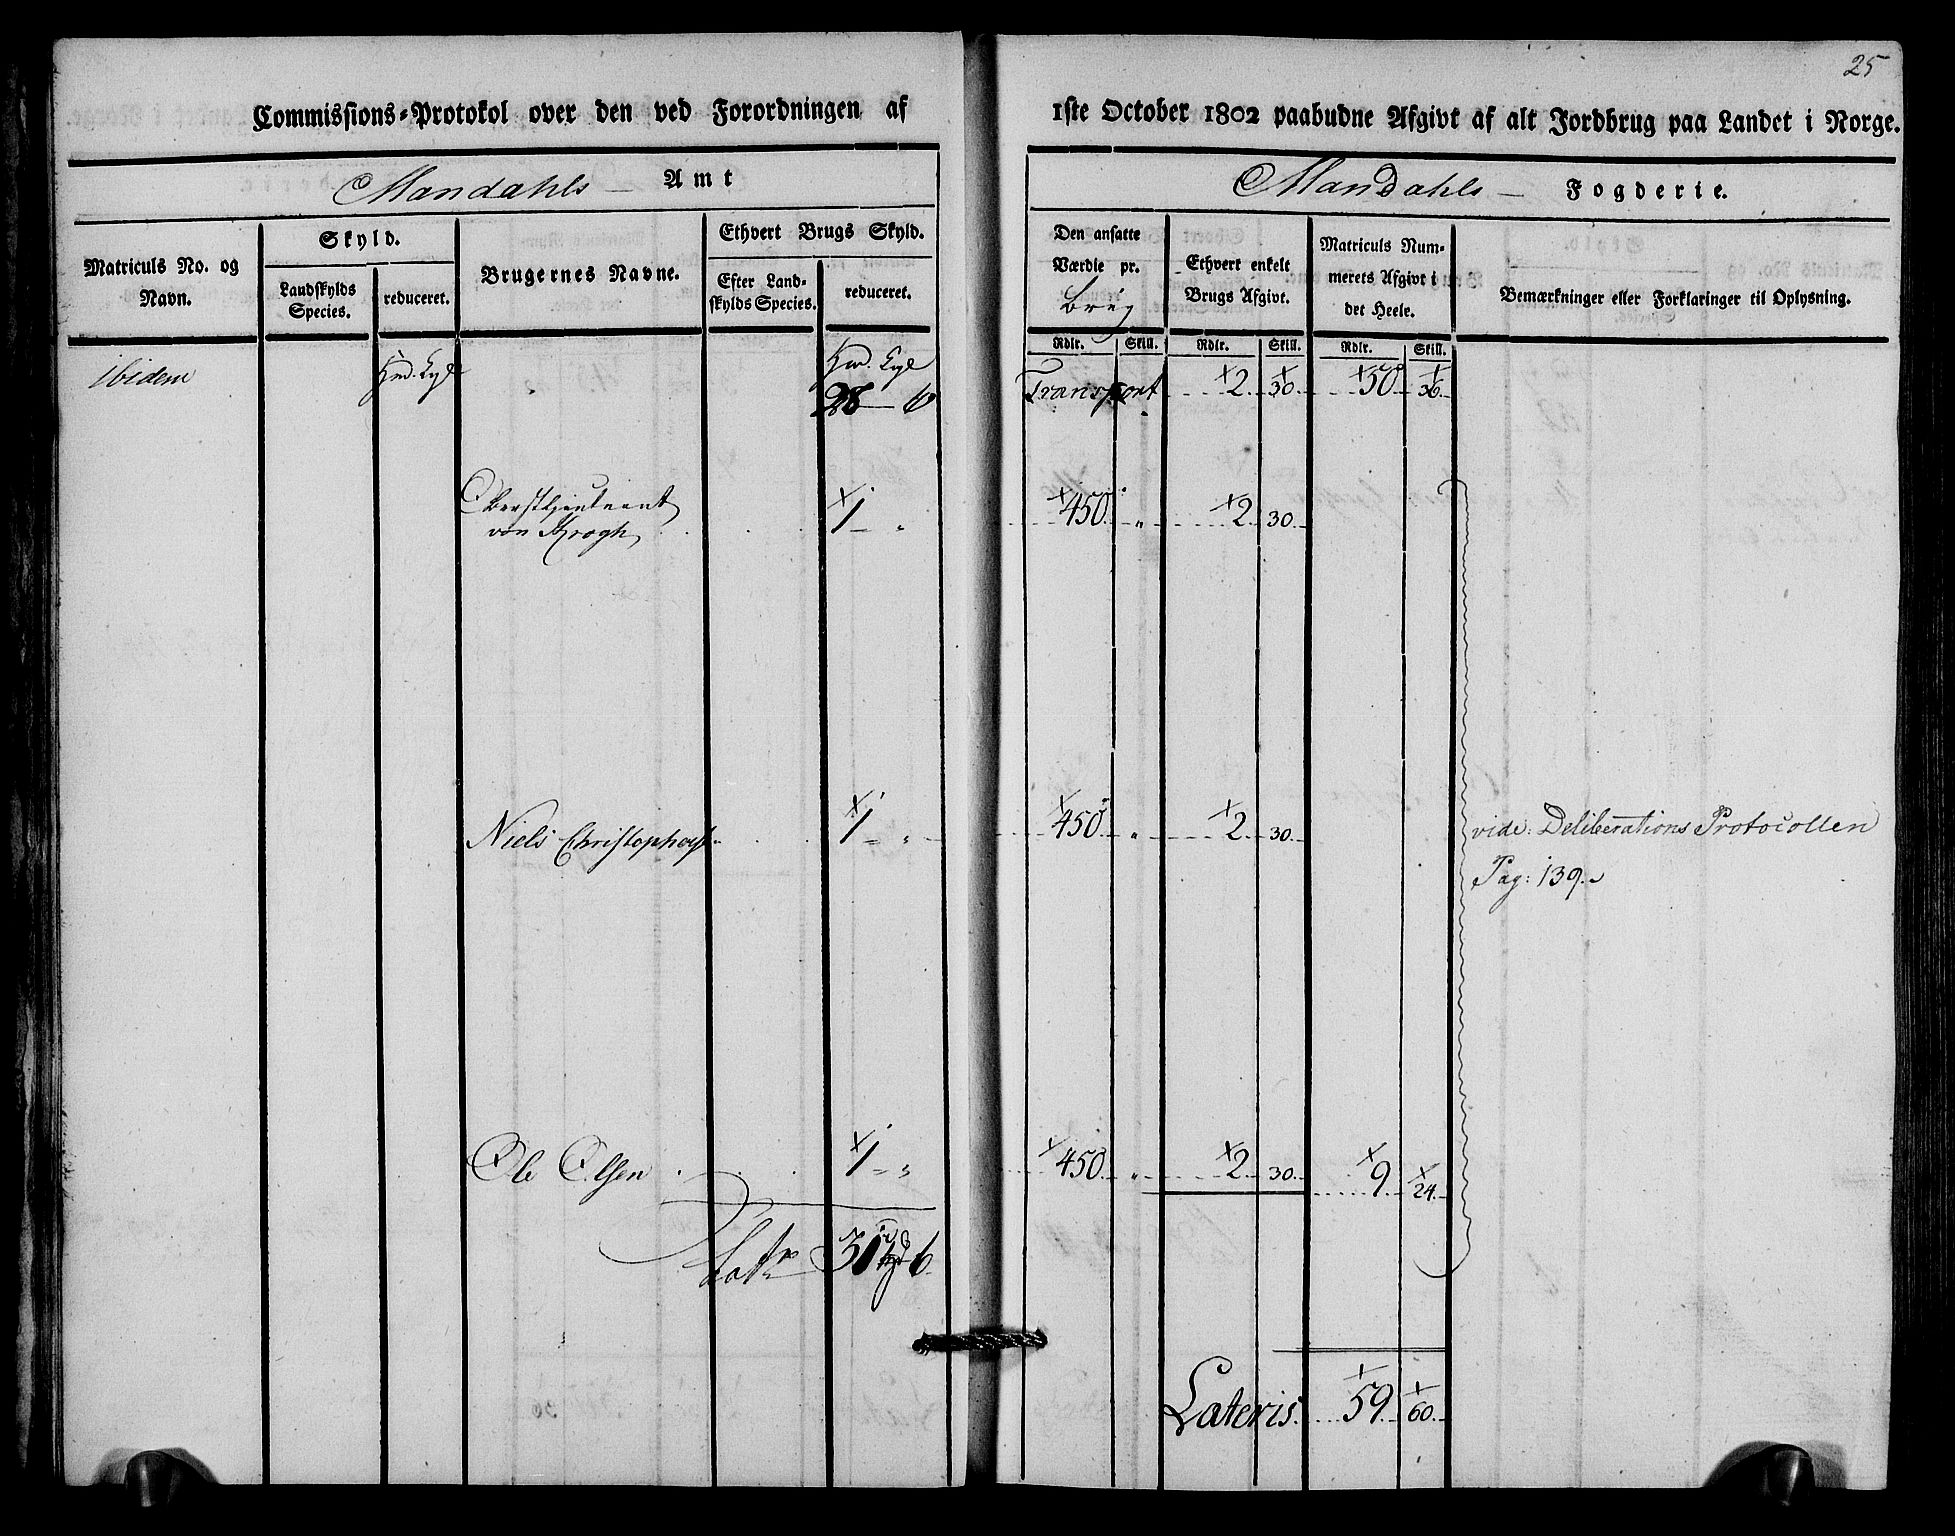 25
Commissions-Protokol over den ved Forordningen af 1ste October 1802 paabudne Afgivt af alt Jordbrug paa Landet i Norge.
Mandahls — Amt
Mandahls — Fogderie.
Matriculs No. og Navn.
Skyld.
Landskylds Species.
reduceret.
Brugernes Navne.
Ethvert Brugs Skyld.
Efter Landskylds Species.
reduceret.
Den ansatte Værdie pr. brug
Ethvert enkelt Brugs Afgivt.
Matriculs Nummerets Afgivt i det Heele.
Bemærkninger eller Forklaringer til Oplysning.
Rdlr. Skill. Rdlr. Skill. Rdlr. Skill.
ibidem
28 — 6 Transport 2. 30. 50 36.
Oberstlieutnant
von Krogh 1 — „ 450. „ 2. 30.
Niels Christophers. 1 „ 450. „ 2. 30. vide: Deliberations Protocollen
Pag: 139.
Ole Olsen 1 „ 450. „ 2. 30. 9. 24.
Latr 31 6.
Lateris. 59. 60.